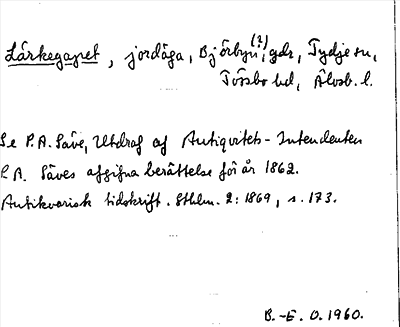 Lärkegapet, jordäga, Björbyn (?), gde, Tydje sn,
Tössbo hd, Älvsb. l.
Se P.A. Säve, Utdrag af Antiqvitets-Intendenten
P.A. Säves afgifna berättelse för år 1862.
Antikvarisk tidskrift. Sthlm. 2: 1869, s. 173.
B.-E. O. 1960.